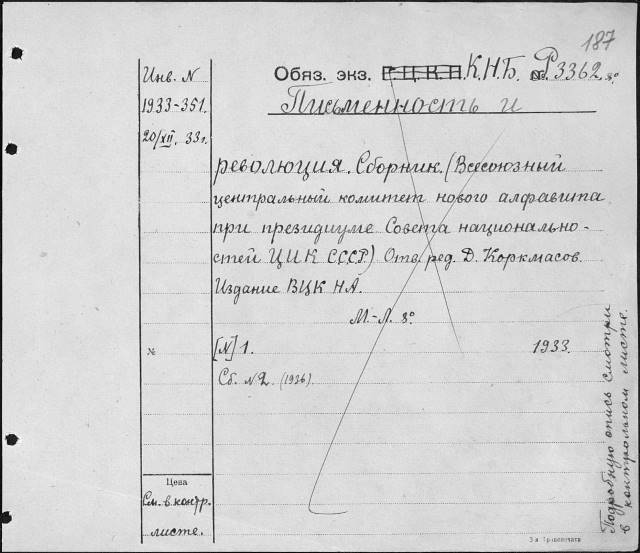 187
Инв. N
1933-351.
20/XII. 33 г.
Обяз. экз. Г.Ц.К.П. К.Н.Б. № Р3362 8°
Письменность и
революция. Сборник. (Всесоюзный
центральный комитет нового алфавита
при президиуме Совета национально-
стей ЦИК СССР.) Отв. ред. Д. Коркмасов.
Издание ВЦК НА.
М.-Л. 8°
№ [N] 1. 1933.
Сб. N 2. (1936).
Цена
См. в контр.
листе.
Подробную опись смотри
в контрольном листе.